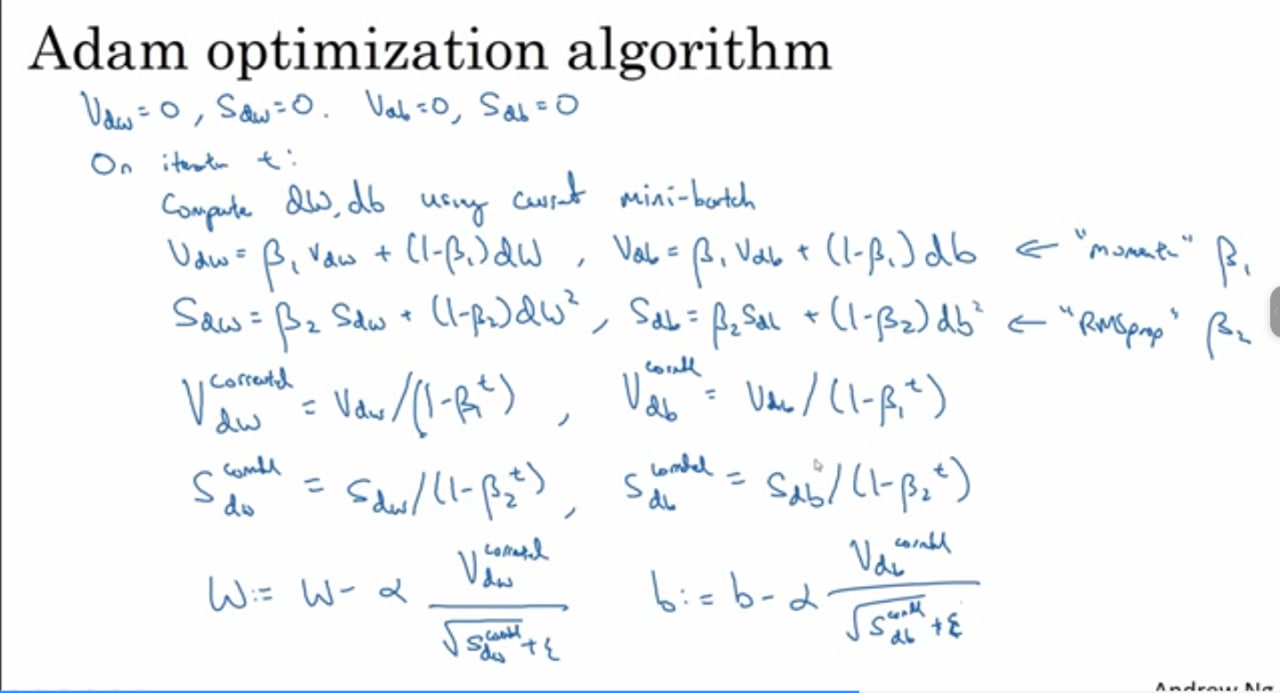 Adam optimization algorithm
V_dw = 0, S_dw = 0. V_db = 0, S_db = 0
On iteratn t:
Compute dW, db using current mini-batch
V_dw = β₁ V_dw + (1-β₁) dW, V_db = β₁ V_db + (1-β₁) db ← "moment" β₁
S_dw = β₂ S_dw + (1-β₂) dW², S_db = β₂ S_db + (1-β₂) db² ← "RMSprop" β₂
V_dw^corrected = V_dw/(1-β₁^t), V_db^corrected = V_db/(1-β₁^t)
S_dw^corrected = S_dw/(1-β₂^t), S_db^corrected = S_db/(1-β₂^t)
W := W - α V_dw^corrected / (√S_dw^corrected + ε) b := b - α V_db^corrected / (√S_db^corrected + ε)
Andrew Ng